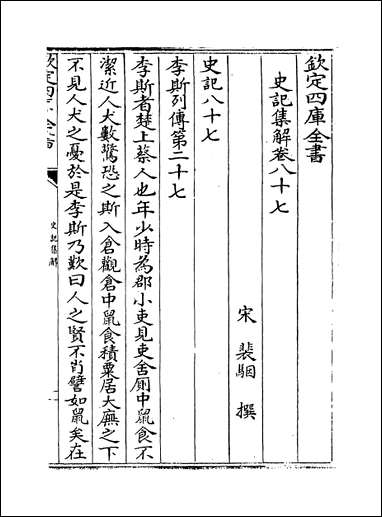 欽定四庫全書
史記集解卷八十七
宋 裴駰 撰
史記八十七
李斯列傳第二十七
李斯者楚上蔡人也年少時為郡小吏見吏舍厠中鼠食不
潔近人犬數驚恐之斯入倉觀倉中鼠食積粟居大廡之下
不見人犬之憂於是李斯乃歎曰人之賢不肖譬如鼠矣在
欽定四庫全書
史記集解
一